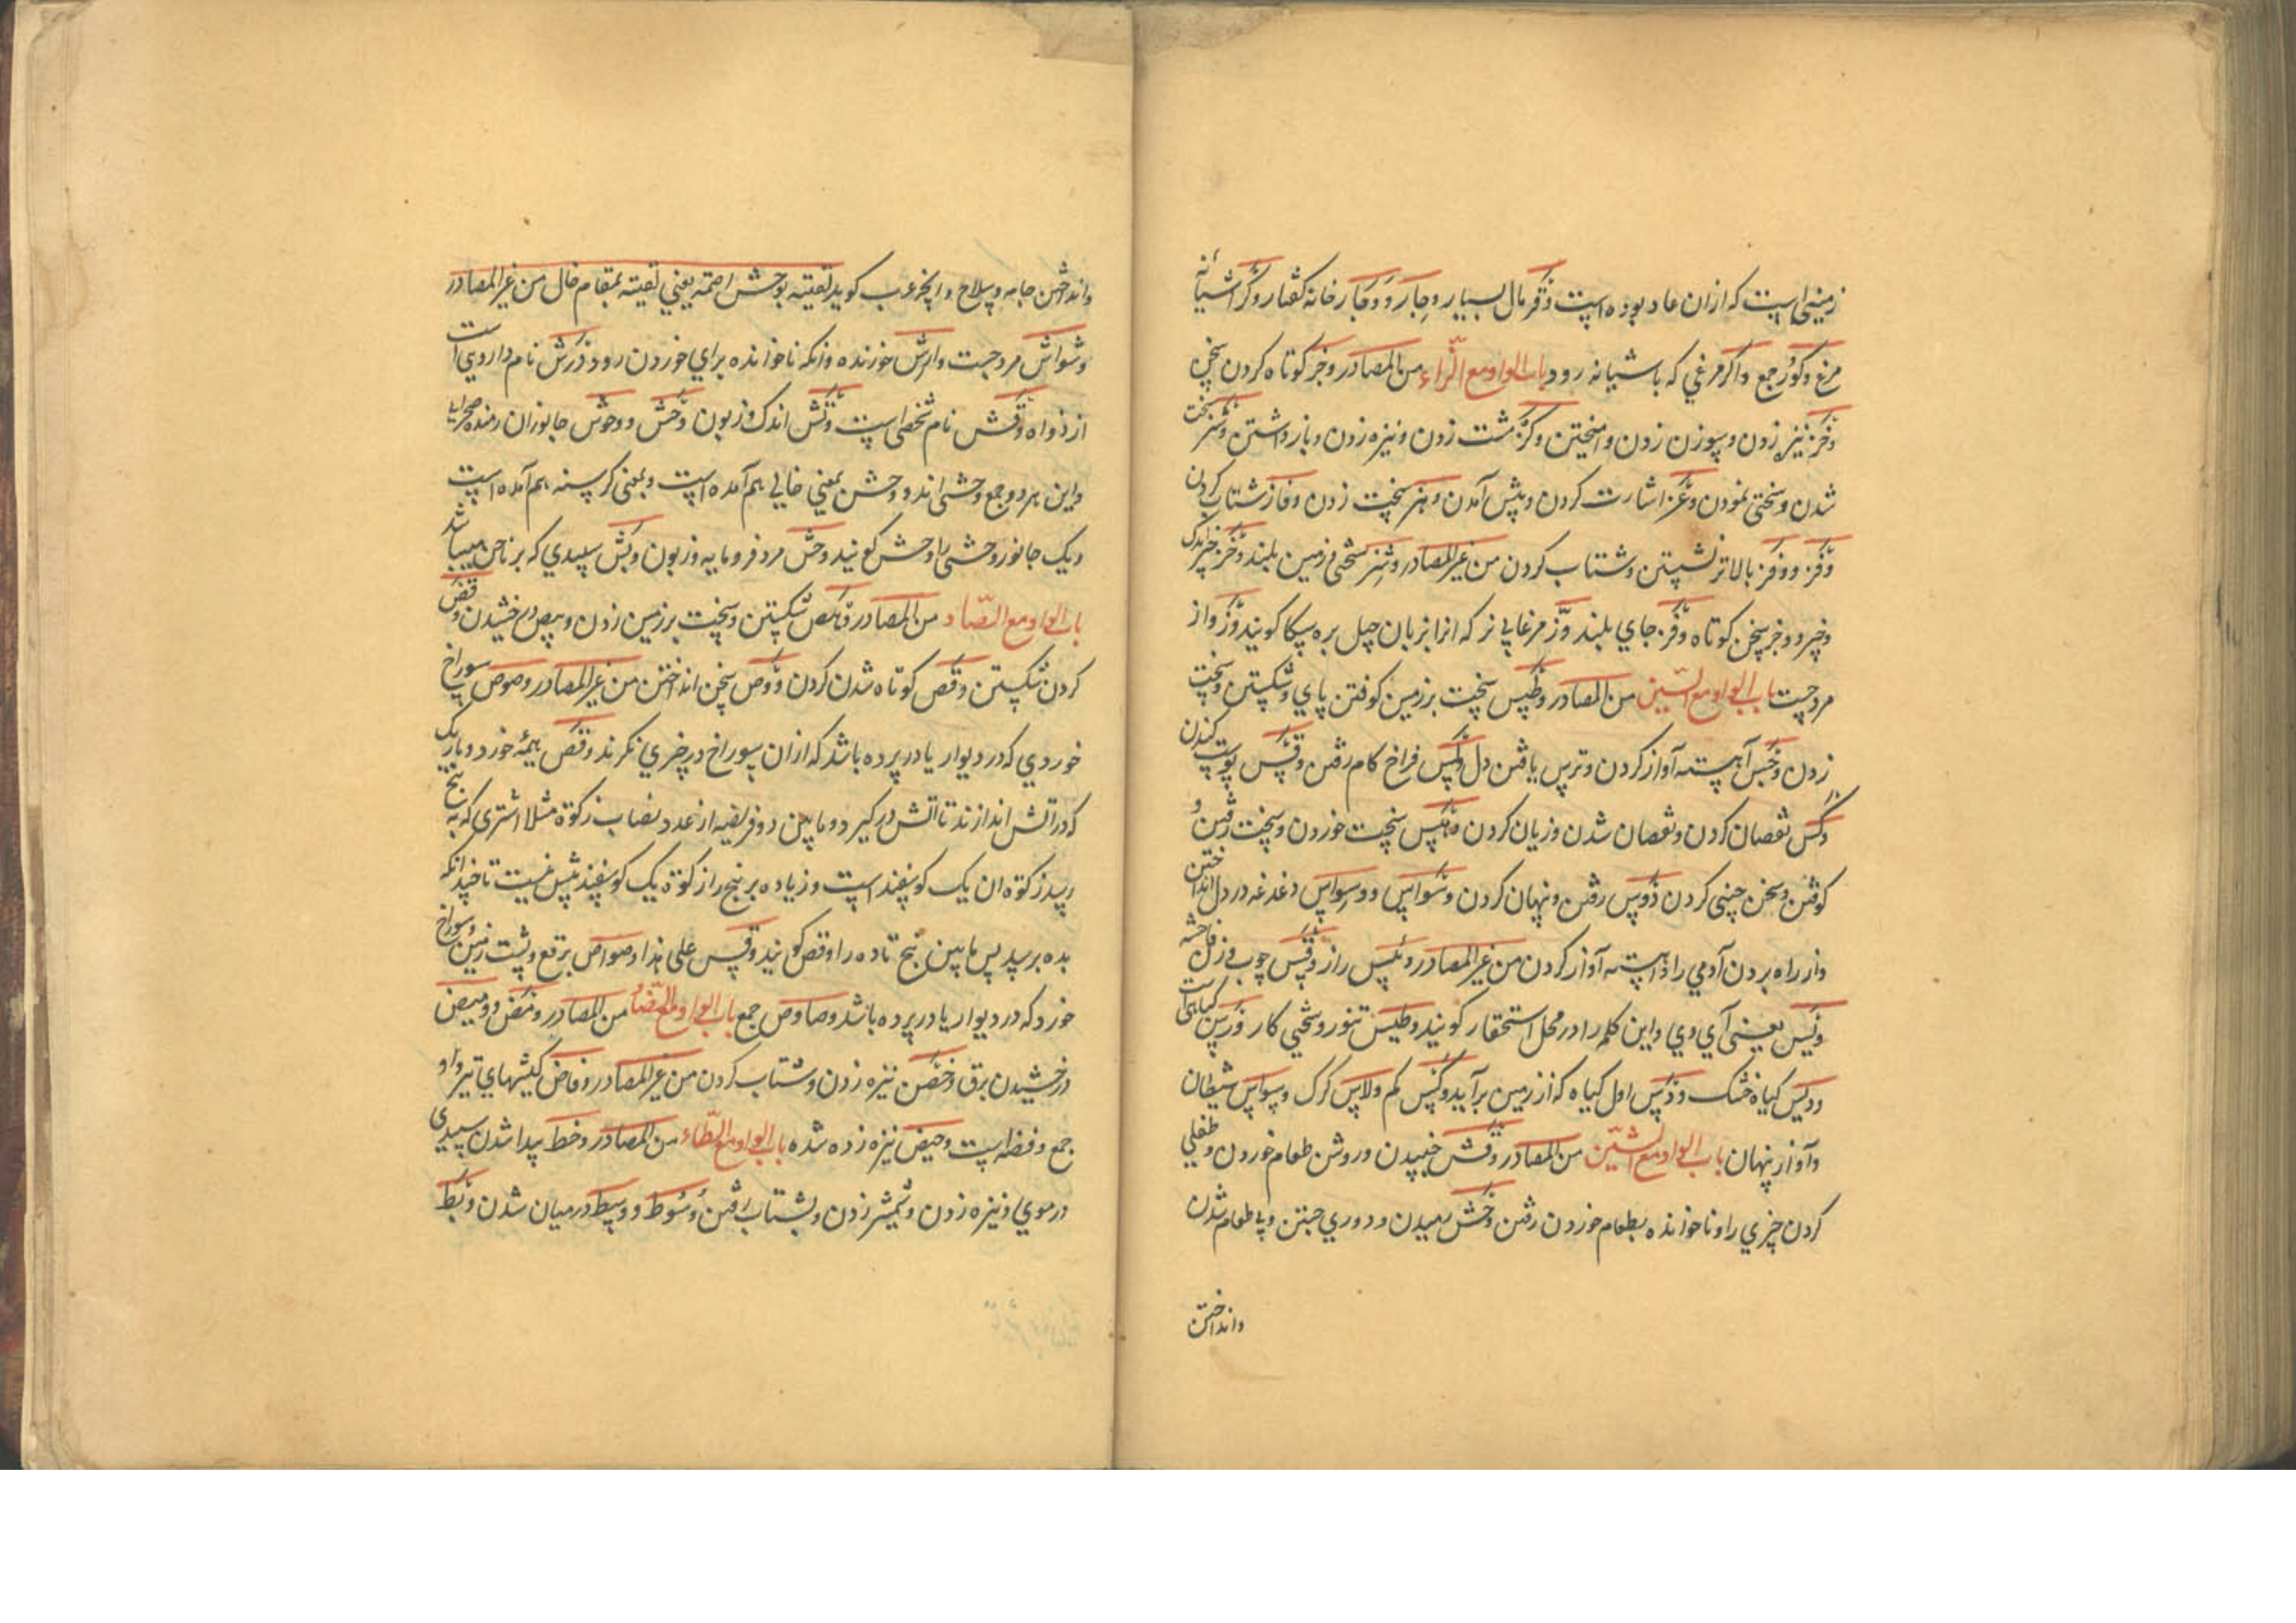 زمینی است که ازان عاد بوده است وَقر مال بسیار وِجار وَ وَجار خانه کفتار وَکر آشیانه
مرغ وُکور جمع واکر مرغی که باشیانه رود باب الواو مع الزاء من المصادر وجز کوتاه کردن سخن
وَخز نیزه زدن و سوزن زدن و امیختن وکز مشت زدن و نیزه زدن و بازداشتن وشز سخت
شدن و سختی نمودن وَعز اشارت کردن و پیش آمدن وهز سخت زدن وفاز شتاب کردن
وَفز ووفز بالاتر نشستن و شتاب کردن من غیر المصادر وشز سختی و زمین بلند وَخز چیز اندک
وجیز و وجز سخن کوتاه وَفز جای بلند وَزّ مرغابی نر که انرا بزبان جیل بره سیکا کویند وَزواز
مرد چست باب الواو مع السین من المصادر وَطس سخت بر زمین کوفتن پای و شکستن و سخت
زدن وَجس آهسته آواز کردن و ترس یافتن دل فراخ کام رفتن وقس پوست کندن
وَکس نقصان کردن و نقصان شدن و زیان کردن وَهس سخت خوردن و سخت رفتن و
کوفتن و سخن چینی کردن رفتن و پنهان کردن وَسواس و وِسواس دغدغه در دل انداختن
واز راه بردن آدمی را و آهسته آواز کردن من غیر المصادر راز وَقس چوب و زن فاحشه
وَیس یعنی آی وی و این کلمه را در محل استحقار کویند وطیس تنور و سختی کار وَرس کیاهی است
ودیس کیاه خشک اول کیاه که از زمین برآید وَکس کم ولاس کرک وسواس شیطان
و آواز پنهان باب الواو مع الشین من المصادر وَقش جنبیدن وروش طعام خوردن و طفلی
کردن چیزی را و ناخوانده بطعام خوردن رفتن وَحش رمیدن و دوری جستن و بی طعام شدن
وانداختن
وانداختن جامه و سلاح و انچه عرب کوید لقیته بوحش اصمته یعنی لقیته بمقام خال من غیر المصادر
وشواش مرد چست وارش خورنده وانکه ناخوانده برای خوردن رود نام دارویی است
از ذواه وَقش نام شخصی است وَتش اندک و زبون وَحش و وحوش جانوران رمنده صحرایی
و این هر دو جمع وحشی اند و وحش بمعنی خالی هم آمده است و بمعنی کرسنه هم آمده است
و یک جانور وحشی را وحش کویند وخش مرد فرومایه و زبون وبش سپیدی که بر ناخن میباشد
باب الواو مع الصاد من المصادر وَهص شکستن و سخت بر زمین زدن وبیص درخشیدن وقص
کردن شکستن وقص کوتاه شدن کردن سخن انداختن من غیر المصادر وصوص سوراخ
خوردی که در دیوار یا در پرده باشد که ازان سوراخ در چیزی نکرند وقص هیمه خورد و باریک
که در آتش اندازند تا آتش درکیرد و مابین دو فریضه از عدد نصاب زکوة مثلا اشتری که به پنج
رسد زکوة ان یک کوسفند است و زیاده بر پنج را زکوة یک کوسفند بیش نیست تا چندانکه
بده برسد پس مابین پنج تا ده را وقص کویند وقس علی هذا وصواص برقع و پشت زمین و سوراخ
خورد که در دیوار یا در پرده باشد وصاوص جمع باب الواو مع الضاد من المصادر ومض و ومیض
درخشیدن برق وخض نیزه زدن و شتاب کردن من غیر المصادر وفاض کیشهای تیر واو
جمع وفضه است وخیض نیزه زده شده باب الواو مع الطاء من المصادر وخط پیدا شدن سپیدی
در موی و نیزه زدن و شمشیر زدن و بشتاب رفتن وُسُوط و وسط در میان شدن وَبط